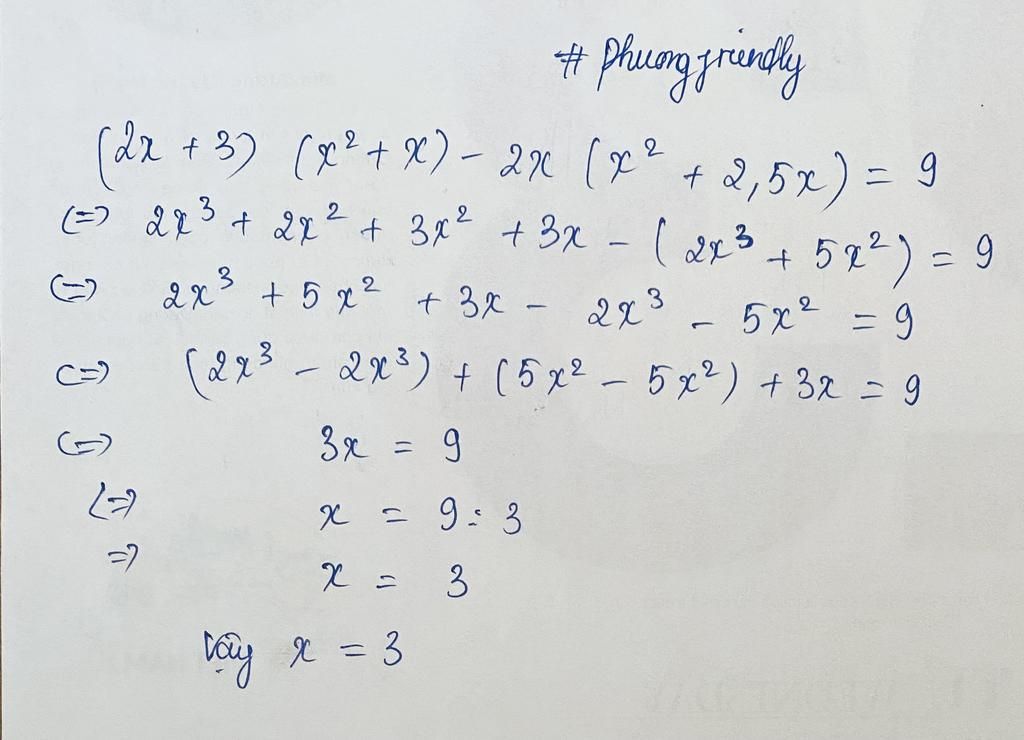 # Phuongfriendly
(2x + 3) (x² + x) - 2x (x² + 2,5x) = 9
(=) 2x³ + 2x² + 3x² + 3x - (2x³ + 5x²) = 9
(=) 2x³ + 5x² + 3x - 2x³ - 5x² = 9
(=) (2x³ - 2x³) + (5x² - 5x²) + 3x = 9
(=) 3x = 9
(=) x = 9 : 3
=) x = 3
Vậy x = 3